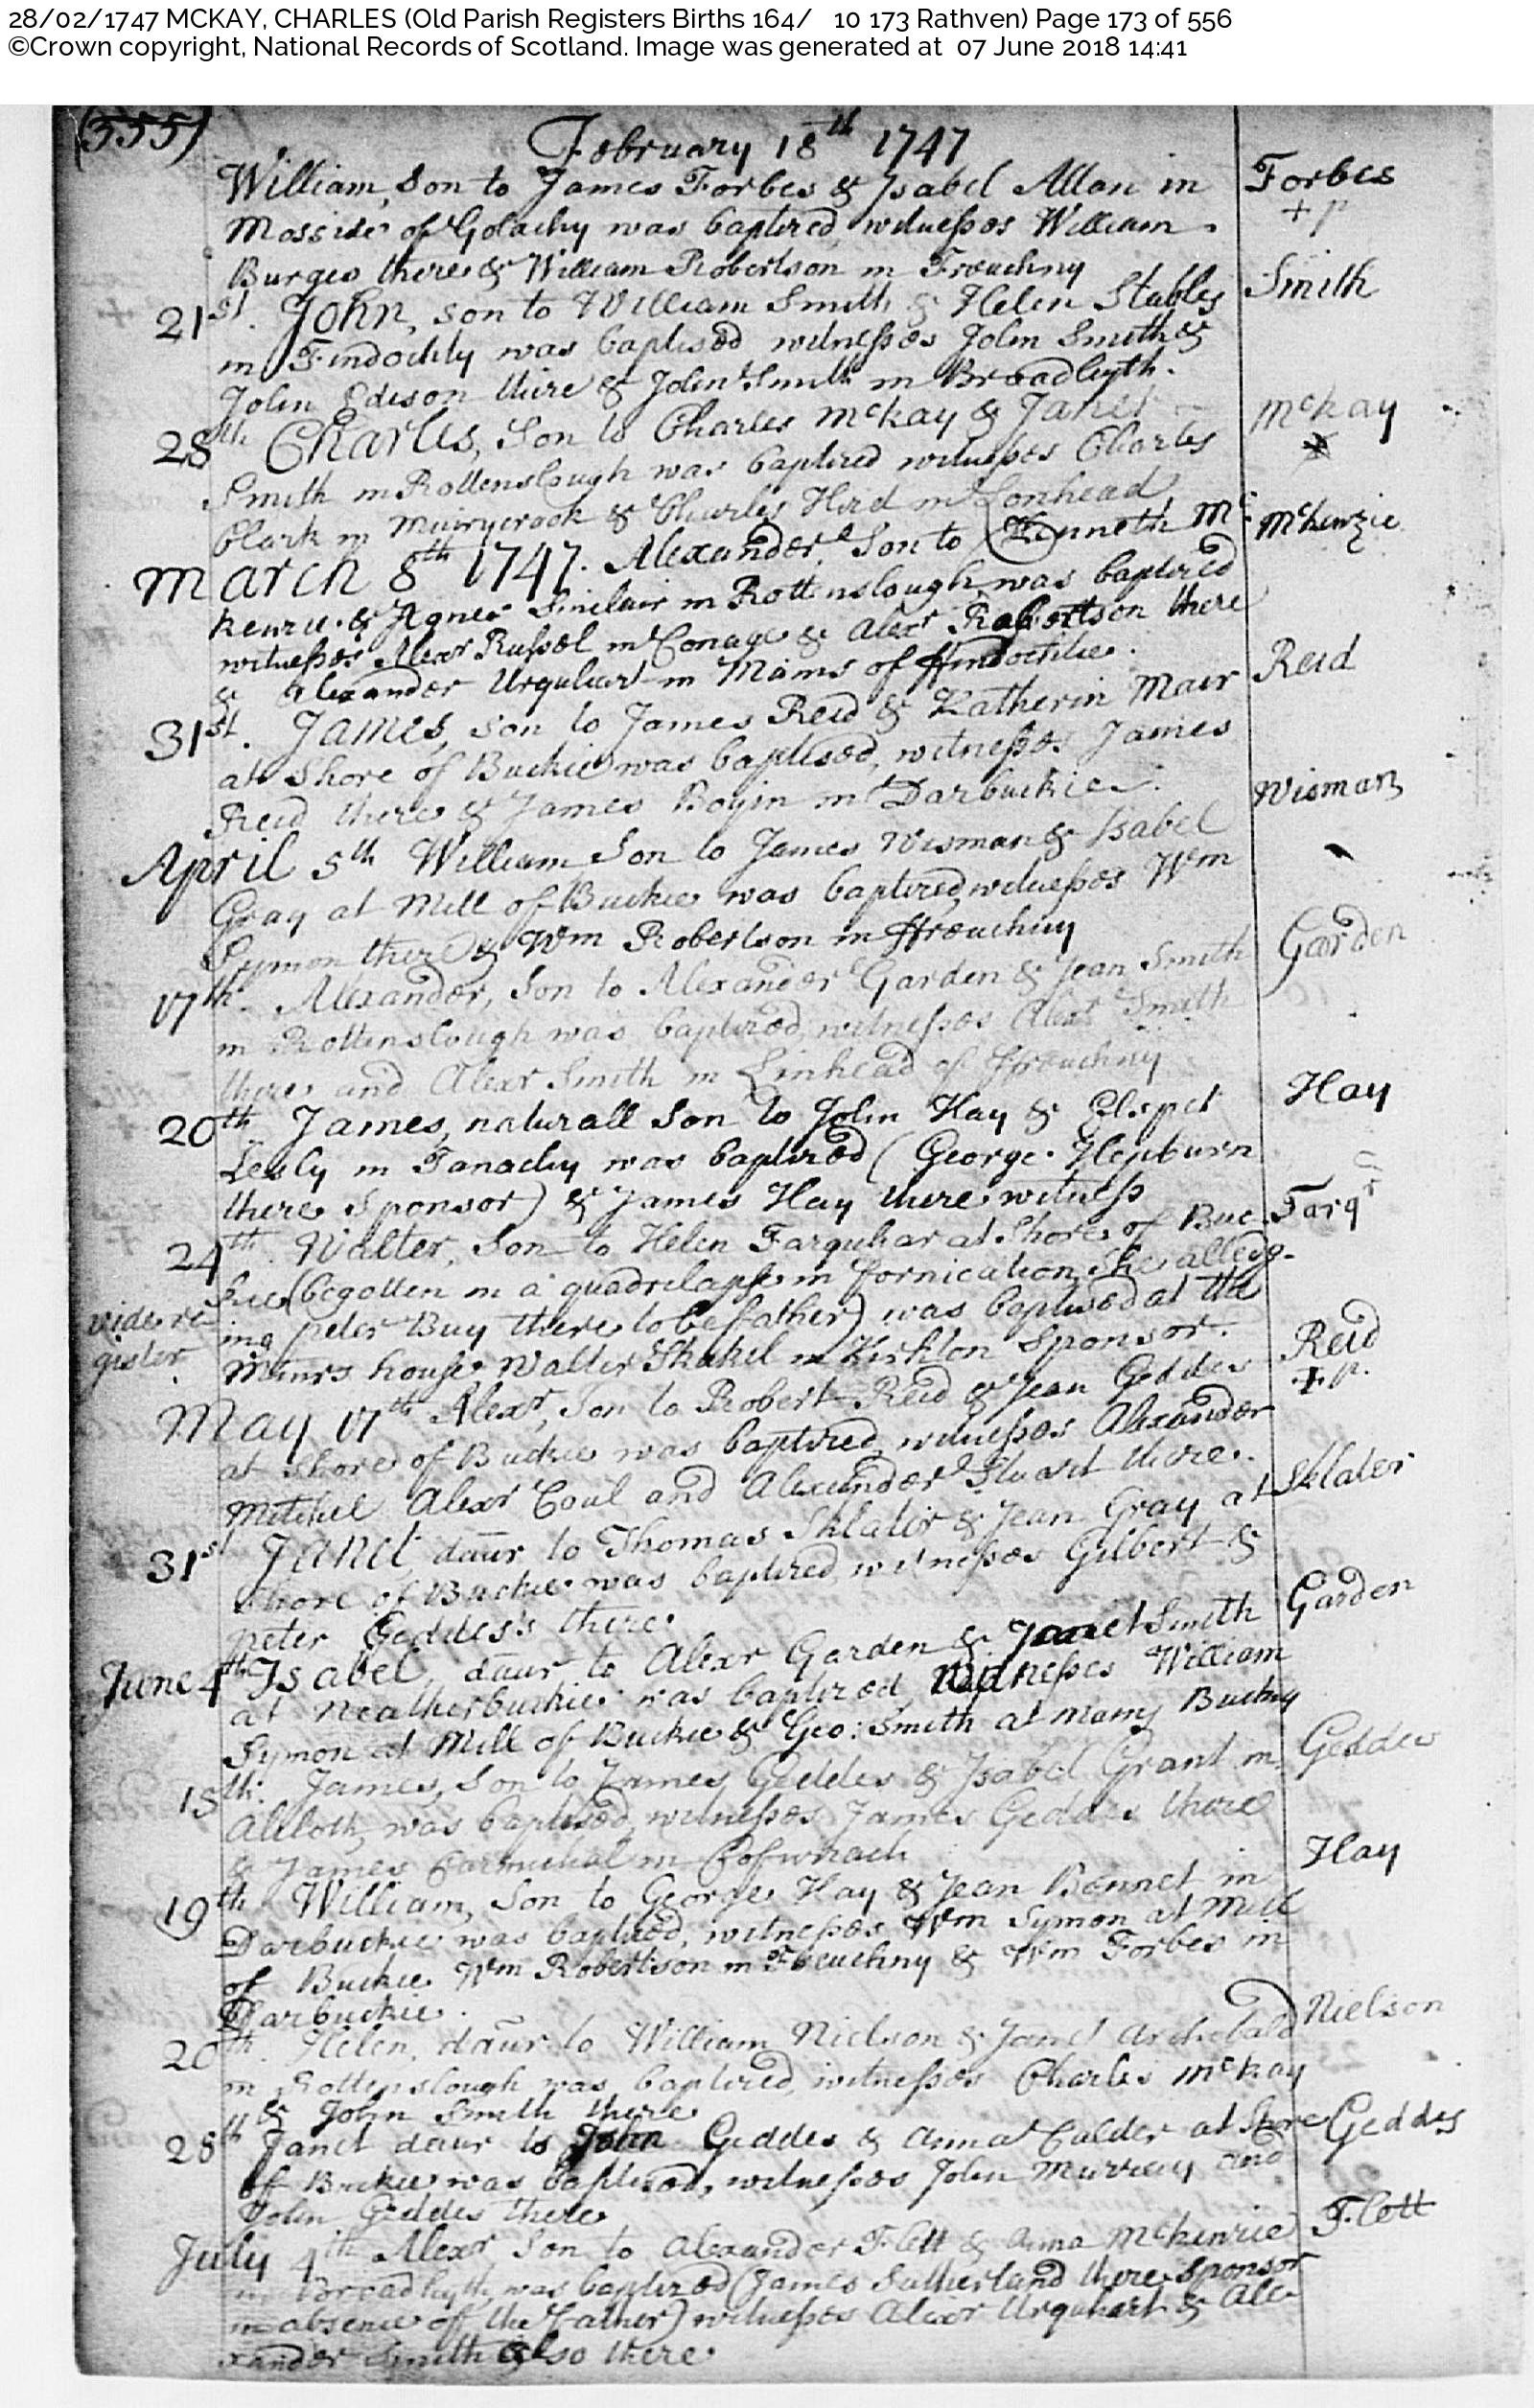 28/02/1747 MCKAY, CHARLES (Old Parish Registers Births 164/ 10 173 Rathven) Page 173 of 556
©Crown copyright, National Records of Scotland. Image was generated at 07 June 2018 14:41
(355)
February 18th 1747
William, Son to James Forbes & Isabel Allan in
Forbes
+ p
Mosside of Golachy was baptized, witnesses William
Burges there & William Robertson in Freuchny
21st. John, son to William Smith & Helen Stables
Smith
in Findochly was baptised witnesses John Smith &
John Edison there & John Smith in Broadhyth.
28th Charles, Son to Charles McKay & Janet
McKay
Smith in Rottenslough was baptized witnesses Charles
Clark in Muirycrook & Charles Hird in Lonhead
March 8th 1747. Alexander, Son to Kenneth Mc
McKenzie
Kenzie & Agnes Sinclair in Rottenslough was baptized
witnesses Alexr Russel in Conage & Alexr Robertson there
& Alexander Urquhart in Mains of ffindochlie.
31st. James, son to James Reid & Katherin Mair
Reid
at Shore of Buckie was baptised, witnesses James
Reid there & James Boyin in Darbuckie.
April 5th William Son to James Wisman & Isabel
Wisman
Gray at Mill of Buckie was baptized, witnesses Wm
Symon there & Wm Robertson in ffreuchny
17th. Alexander, Son to Alexander Garden & Jean Smith
Garden
in Rottenslough was baptized, witnesses Alexr Smith
there and Alexr Smith in Linhead of ffreuchny
20th James, naturall Son to John Hay & Elspet
Hay
Lesly in Tanachy was baptized (George Hepburn
there Sponsor) & James Hay there witness
24th. Walter, Son to Helen Farquhar at Shore of Buc-
Farqr
kie (begotten in a quadrilapse in fornication, She alledg-
vide re-
gister
ing peter Buy there to be father) was baptized at the
Minrs house, Walter Shakel in Kirkton Sponsor.
May 17th Alexr, Son to Robert Reid & Jean Geddes
Reid
+ p.
at Shore of Buckie was baptized, witnesses Alexander
Mitchel Alexr Coul and Alexander Stuart there.
31st Janet daur to Thomas Sklater & Jean Gray at
Sklater
Shore of Buckie was baptized, witnesses Gilbert &
peter Geddes's there.
June 4th Isabel, daur to Alexr Garden & Janet Smith
Garden
at Neatherbuckie was baptized, Witnesses William
Symon at Mill of Buckie & Geo: Smith at Mains Buckny
15th. James, Son to James Geddes & Isabel Grant in
Geddes
was baptised, witnesses James Geddes there
& James Carmichal in
19th William, Son to George Hay & Jean Bennet in
Hay
Darbuckie was baptized, witnesses Wm Symon at Mill
of Buckie Wm Robertson in Freuchny & Wm Forbes in
Darbuckie.
20th. Helen, daur to William Nielson & Janet Archebald
Nielson
in Rottenslough was baptized, witnesses Charles McKay
& John Smith there
28th Janet daur to John Geddes & Anna Calder at Shore
Geddes
of Buckie was baptised, witnesses John Murray and
John Geddes there
July 4th Alexr Son to Alexander Flett & Anna McKenzie
Flett
in Broadhyth, was baptized (James Sutherland there Sponsor
in absence off the father) witnesses Alexr Urquhart & Ale-
xander Smith also there.